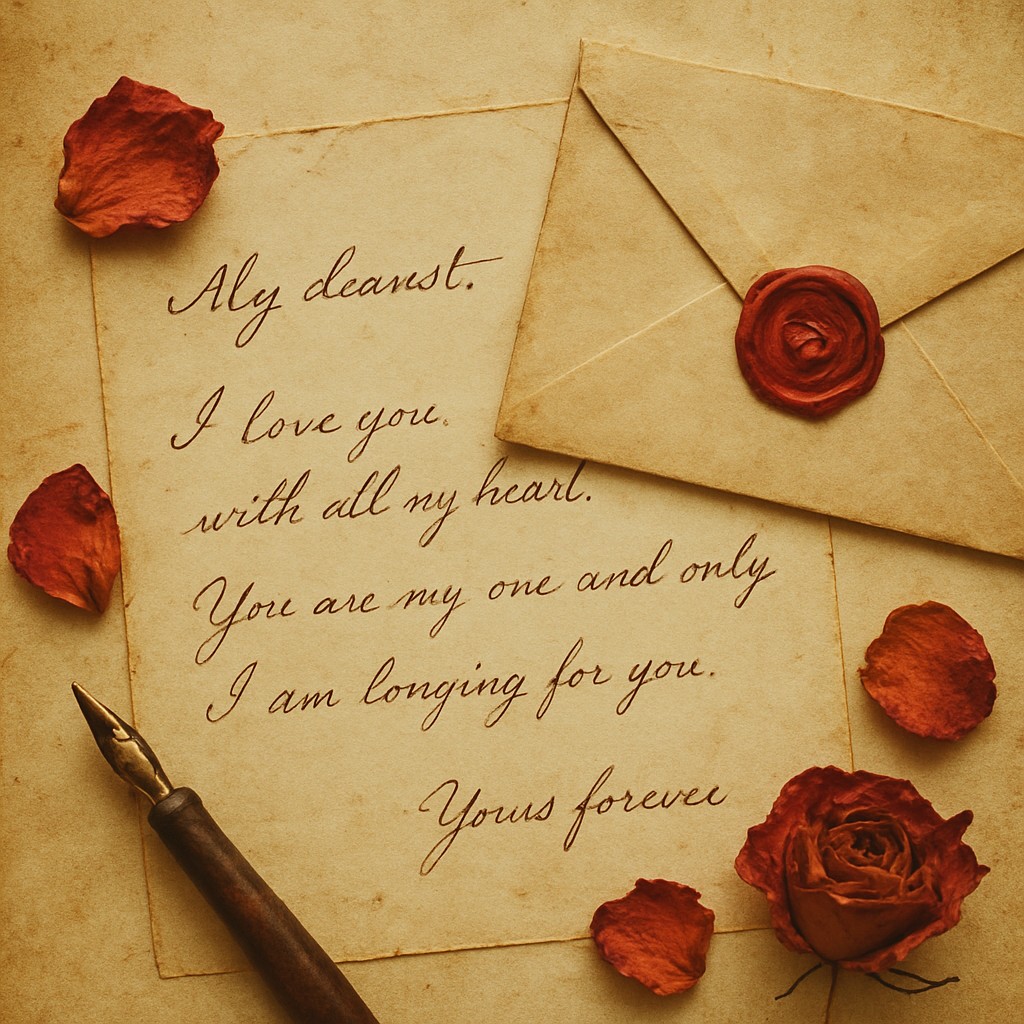 Aly dearest.
I love you.
with all ny heart.
You are my one and only
I am longing for you.
Yours forever